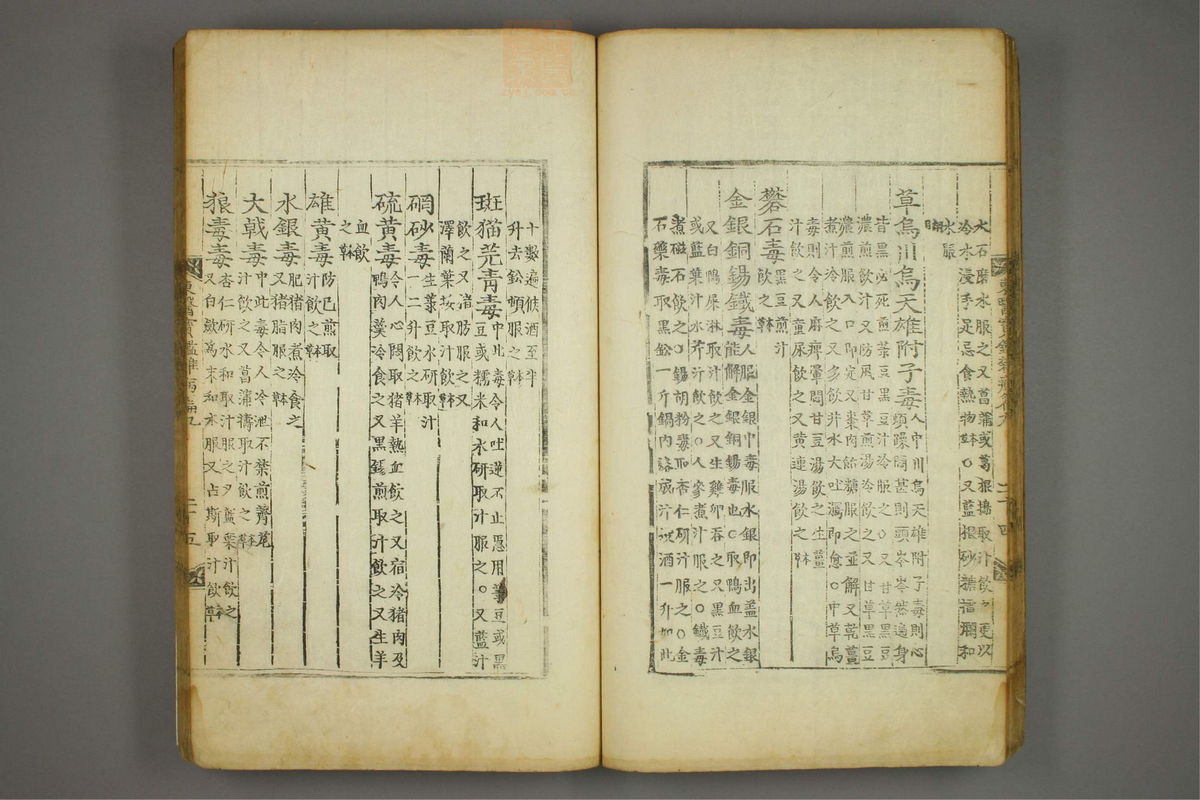 水石磨水服之又菖蒲或葛根擣取汁飲之更以
冷水浸手足忌食熱物本草〇又藍根砂糖擂爛和
水服
草烏川烏天雄附子毒人中川烏天雄附子毒則心
頭躁悶甚則頭岑岑然遍身
皆黑必死煎菉豆黑豆汁冷服之〇又甘草黑豆
濃煎飲汁又防風甘草煎湯冷飲之又甘草黑豆
濃煎服入口卽定又棗肉飴糖服之並解又乾薑
煮汁冷飲之又多飲井水大吐瀉卽愈〇中草烏
毒則令人麻痺暈悶甘豆湯飲之生薑
汁飲之又童尿飲之又黃連湯飲之本草
礬石毒黑豆煎汁
飲之本草
金銀銅錫鐵毒人服金銀中毒服水銀即出盖水銀
能解金銀銅錫毒也〇取鴨血飲之
又白鴨屎淋取汁飲之又生雞卵吞之又黑豆汁
或藍葉汁水芹汁飲之〇人參煮汁服之〇鐵毒
煮磁石飲之〇錫胡粉毒取杏仁研汁服之〇金
石藥毒取黑鈆一斤鍋內鎔成汁投酒一升如此
十數遍候酒至半
升去鈆頓服之本草
斑猫芫靑毒中此毒令人吐逆不止急用菉豆或黑
豆或糯米和水研取汁服之〇又藍汁
飲之又渚肪服之又
澤蘭葉挼取汁飲本草
硇砂毒生菉豆水研取汁
一二升飲之本草
硫黃毒令人心悶取猪羊熱血飮之又宿冷猪肉及
鴨肉羹冷食之又黑錫煎取汁飲之又生羊
血飲
之本草
雄黃毒防己煎取
汁飲之本草
水銀毒肥猪肉煮冷食之
又猪脂服之本草
大戟毒中此毒令人冷泄不禁煎薺苨
汁飲之又菖蒲擣取汁飲之本草
狼毒毒杏仁研水和取汁服之又藍葉汁飲之
又白斂爲末和水服又占斯取汁飲本草
東醫寶鑑雜病篇九
二十五